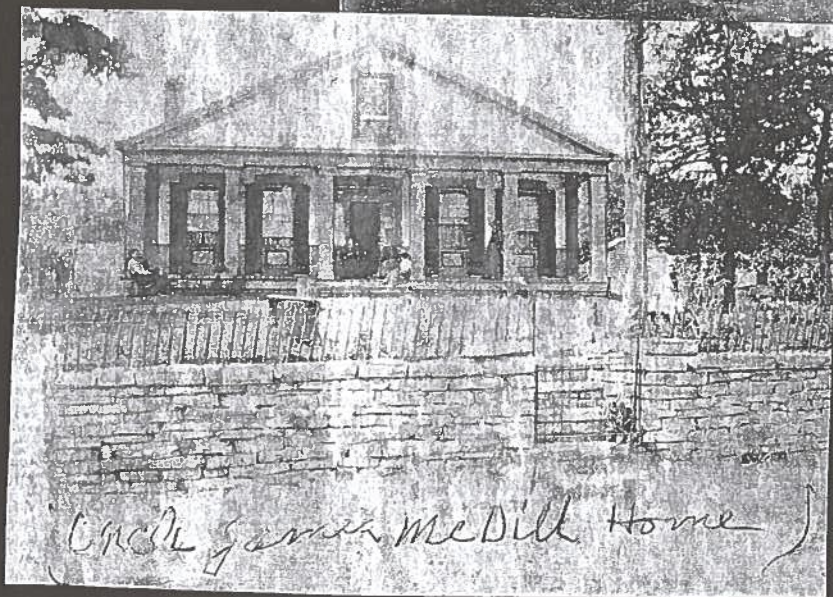 (Uncle James McDill Home)